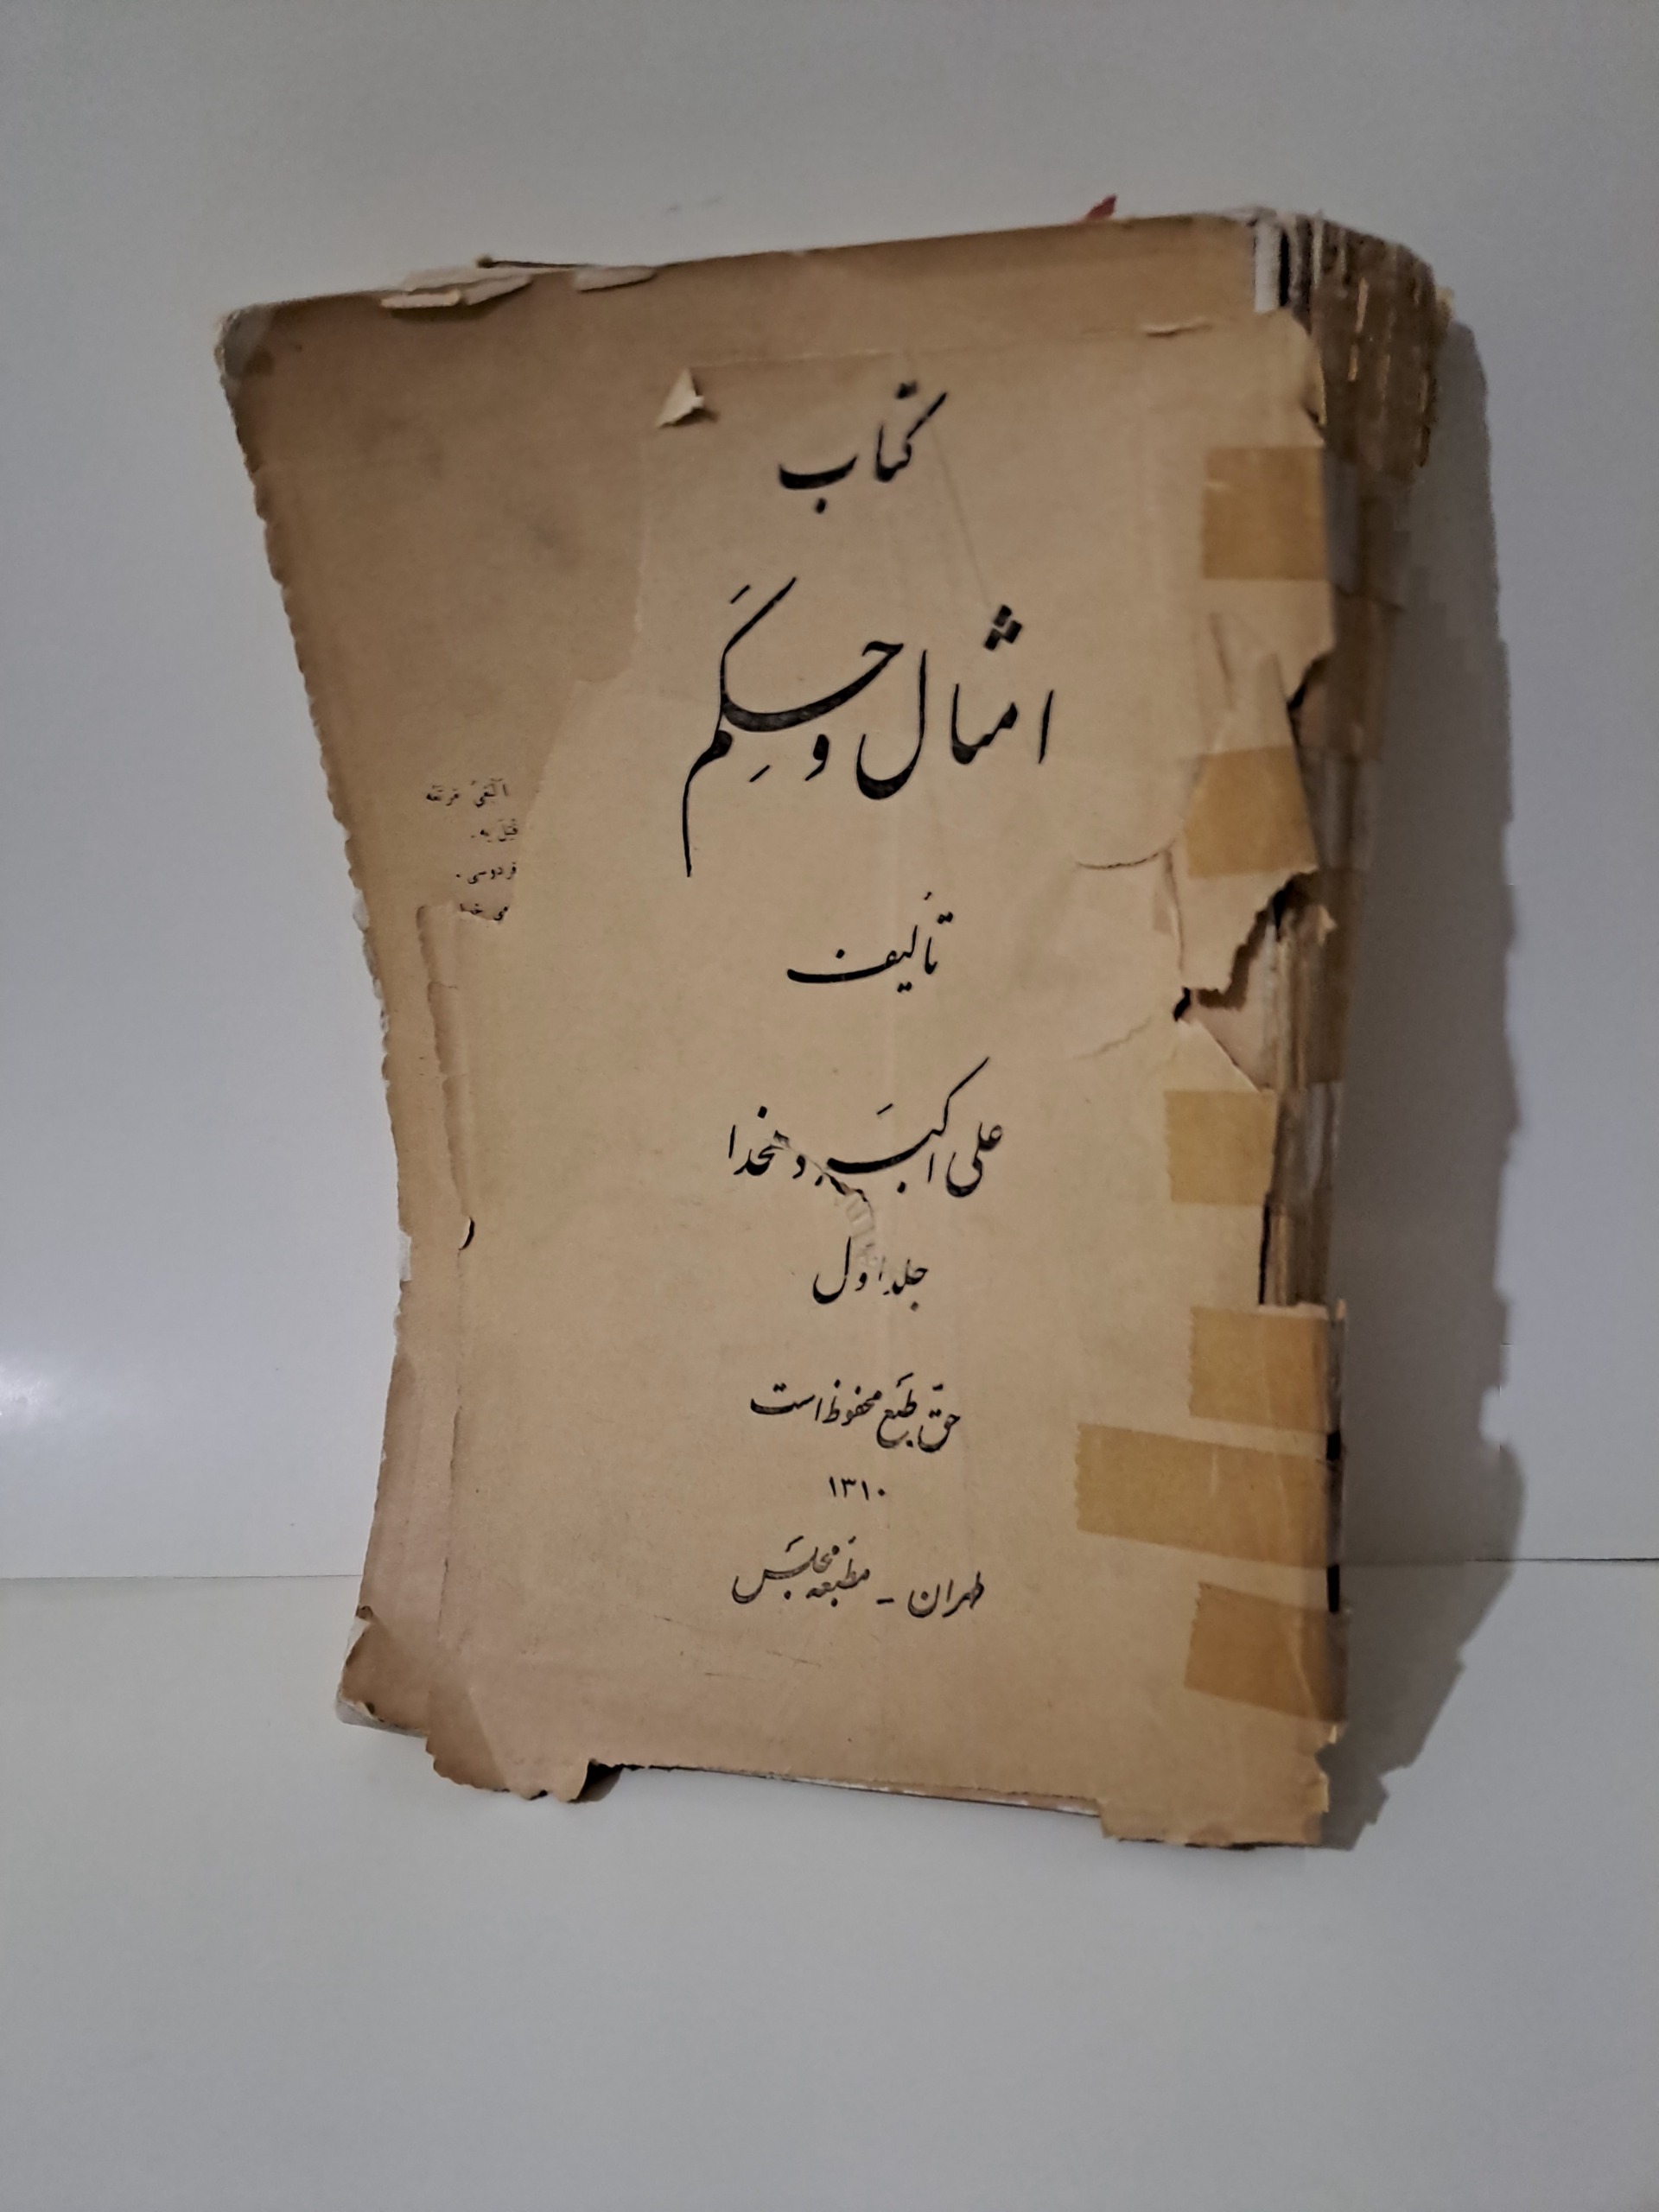 کتاب
امثال و حِکَم
تألیف
علی اکبر دهخدا
جلد اول
حقّ طبع محفوظ است
۱۳۱۰
طهران - مطبعهٔ مجلس
فردوسی.